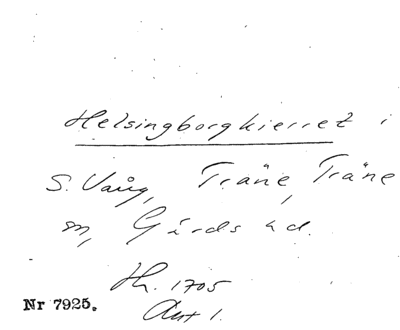 Helsingborgkierret i
S. Vång, Träne, Träne
sn, Gärds hd.
Hh. 1705
Akt 1.
Nr 7925.